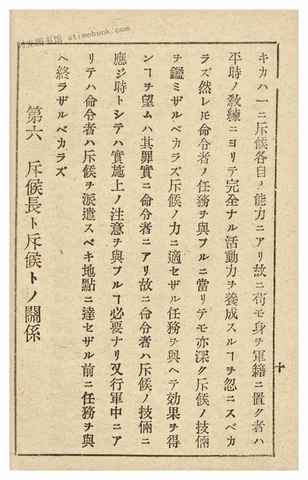 时光图书馆 stimebook.com
キカハ一ニ斥候各自ノ能力ニアリ故ニ苟モ身ヲ軍籍ニ置ク者ハ
平時ノ教練ニヨリテ完全ナル活動力ヲ養成スルヿヲ忽ニスベカ
ラズ然レ𪜈命令者ノ任務ヲ與フルニ當リテモ亦深ク斥候ノ技倆
ヲ鑑ミザルベカラズ斥候ノ力ニ適セザル任務ヲ與ヘテ効果ヲ得
ンヿヲ望ムハ其罪實ニ命令者ニアリ故ニ命令者ハ斥候ノ技倆ニ
應ジ時トシテハ實施上ノ注意ヲ與フルヿ必要ナリ又行軍中ニア
リテハ命令者ハ斥候ヲ派遣スベキ地點ニ達セザル前ニ任務ヲ與
ヘ終ラザルベカラズ
第六 斥候長ト斥候トノ關係
十